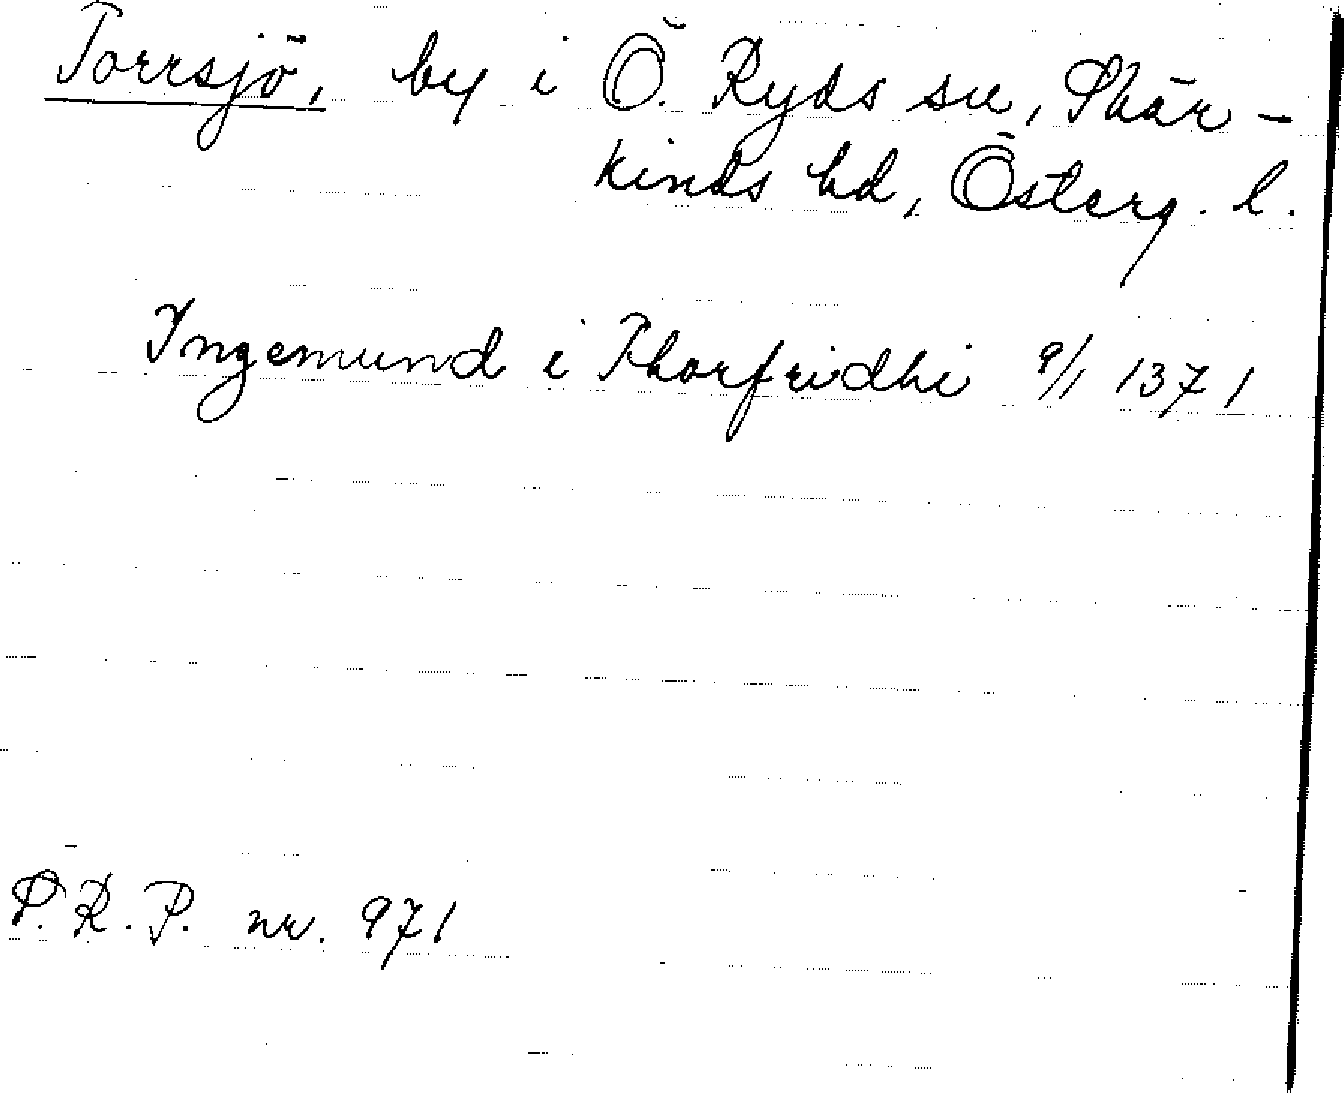 Torrsjö, by i Ö. Ryds sn, Skär-
kinds hd, Österg. l.
Ingemund i Thorfridhi 9/1 1371
S.R.P. nr. 971